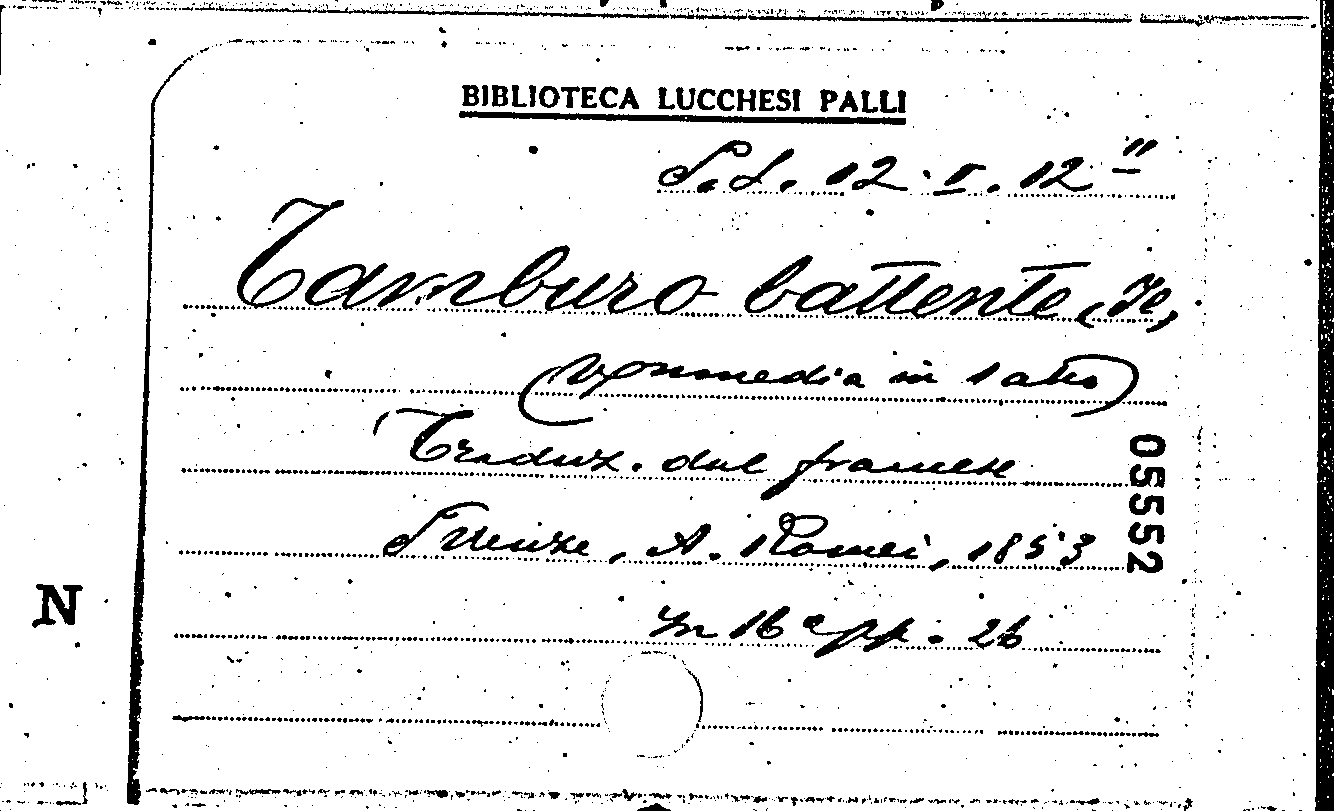 BIBLIOTECA LUCCHESI PALLI
S. L. 12. I. 12 "
Tamburo battente (Il)
(Commedia in 1 atto)
Traduz. dal francese
Firenze, A. Romei, 1853
05552
N
In 16° pp. 26